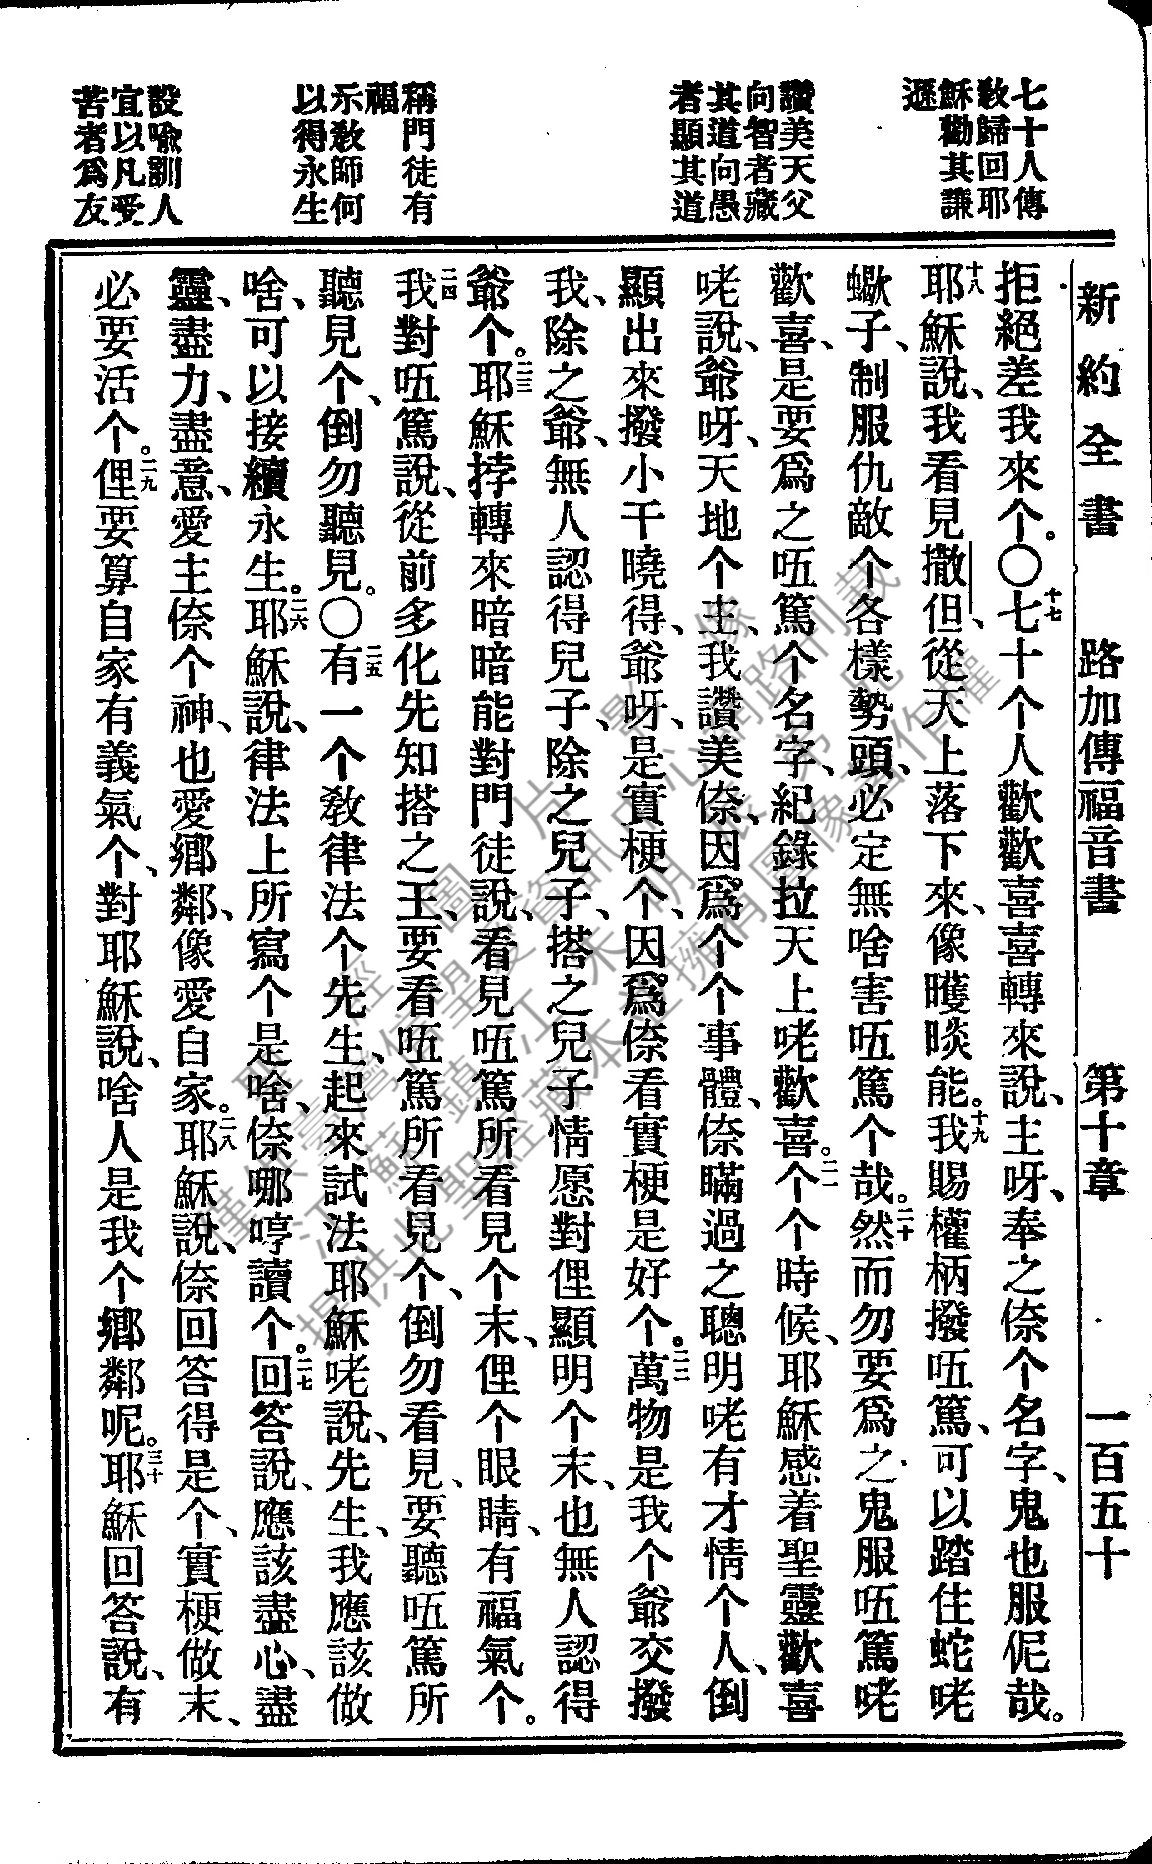 新約全書　路加傳福音書　第十章　一百五十
七十人傳
教歸回耶
穌勸其謙
遜
讚美天父
向智者藏
其道向愚
者顯其道
稱門徒有
福
示教師何
以得永生
設喩訓人
宜以凡受
苦者爲友
拒絕差我來个。〇十七七十个人歡歡喜喜轉來說、主呀、奉之倷个名字、鬼也服伲哉。
十八耶穌說、我看見撒但、從天上落下來、像矆睒能。十九我賜權柄撥㕶篤、可以踏住蛇咾
蠍子、制服仇敵个各樣勢頭、必定無啥害㕶篤个哉。二十然而勿要爲之鬼服㕶篤咾
歡喜、是要爲之㕶篤个名字、紀錄拉天上咾歡喜。二一个个時候、耶穌感着聖靈歡喜
咾說、爺呀、天地个主、我讚美倷、因爲个个事體、倷瞞過之聰明咾有才情个人、倒
顯出來撥小干曉得、爺呀、是實梗个、因爲倷看實梗是好个。二二萬物是我个爺交撥
我、除之爺、無人認得兒子、除之兒子、搭之兒子情愿對俚顯明个末、也無人認得
爺个。二三耶穌挬轉來暗暗能對門徒說、看見㕶篤所看見个末、俚个眼睛、有福氣个。
二四我對㕶篤說、從前多化先知搭之王、要看㕶篤所看見个、倒勿看見、要聽㕶篤所
聽見个、倒勿聽見。〇二五有一个教律法个先生、起來試法耶穌咾說、先生、我應該做
啥、可以接續永生。二六耶穌說、律法上所寫个是啥、倷哪哼讀个。二七回答說、應該盡心、盡
靈、盡力、盡意、愛主倷个神、也愛鄉鄰、像愛自家。二八耶穌說、倷回答得是个、實梗做末、
必要活个。二九俚要算自家有義氣个、對耶穌說、啥人是我个鄉鄰呢。三十耶穌回答說、有